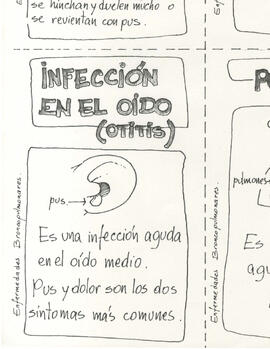 se hinchan y duelen mucho o
se revientan con pus.
INFECCIÓN
EN EL OÍDO
(OTITIS)
Enfermedades Broncopulmonares
pus.
Es una infección aguda
en el oído medio.
Pus y dolor son los dos
síntomas más comunes.
pulmones
Es
agu
Enfermedades Broncopulmonares